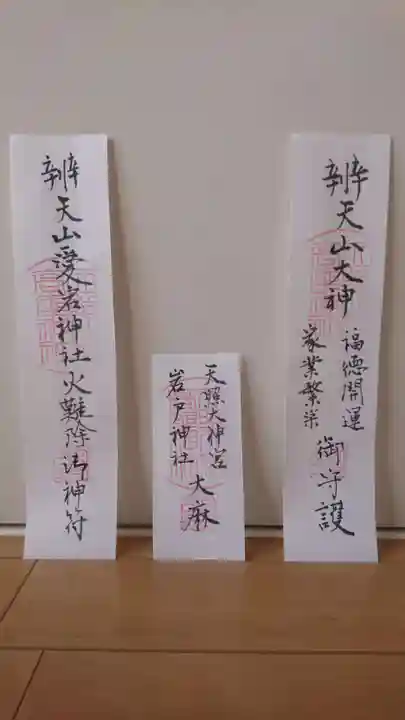 辨天山大神
福徳開運
家業繁栄
御守護
天照大神宮
岩戸神社
大麻
辨天山愛宕神社火難除御神符